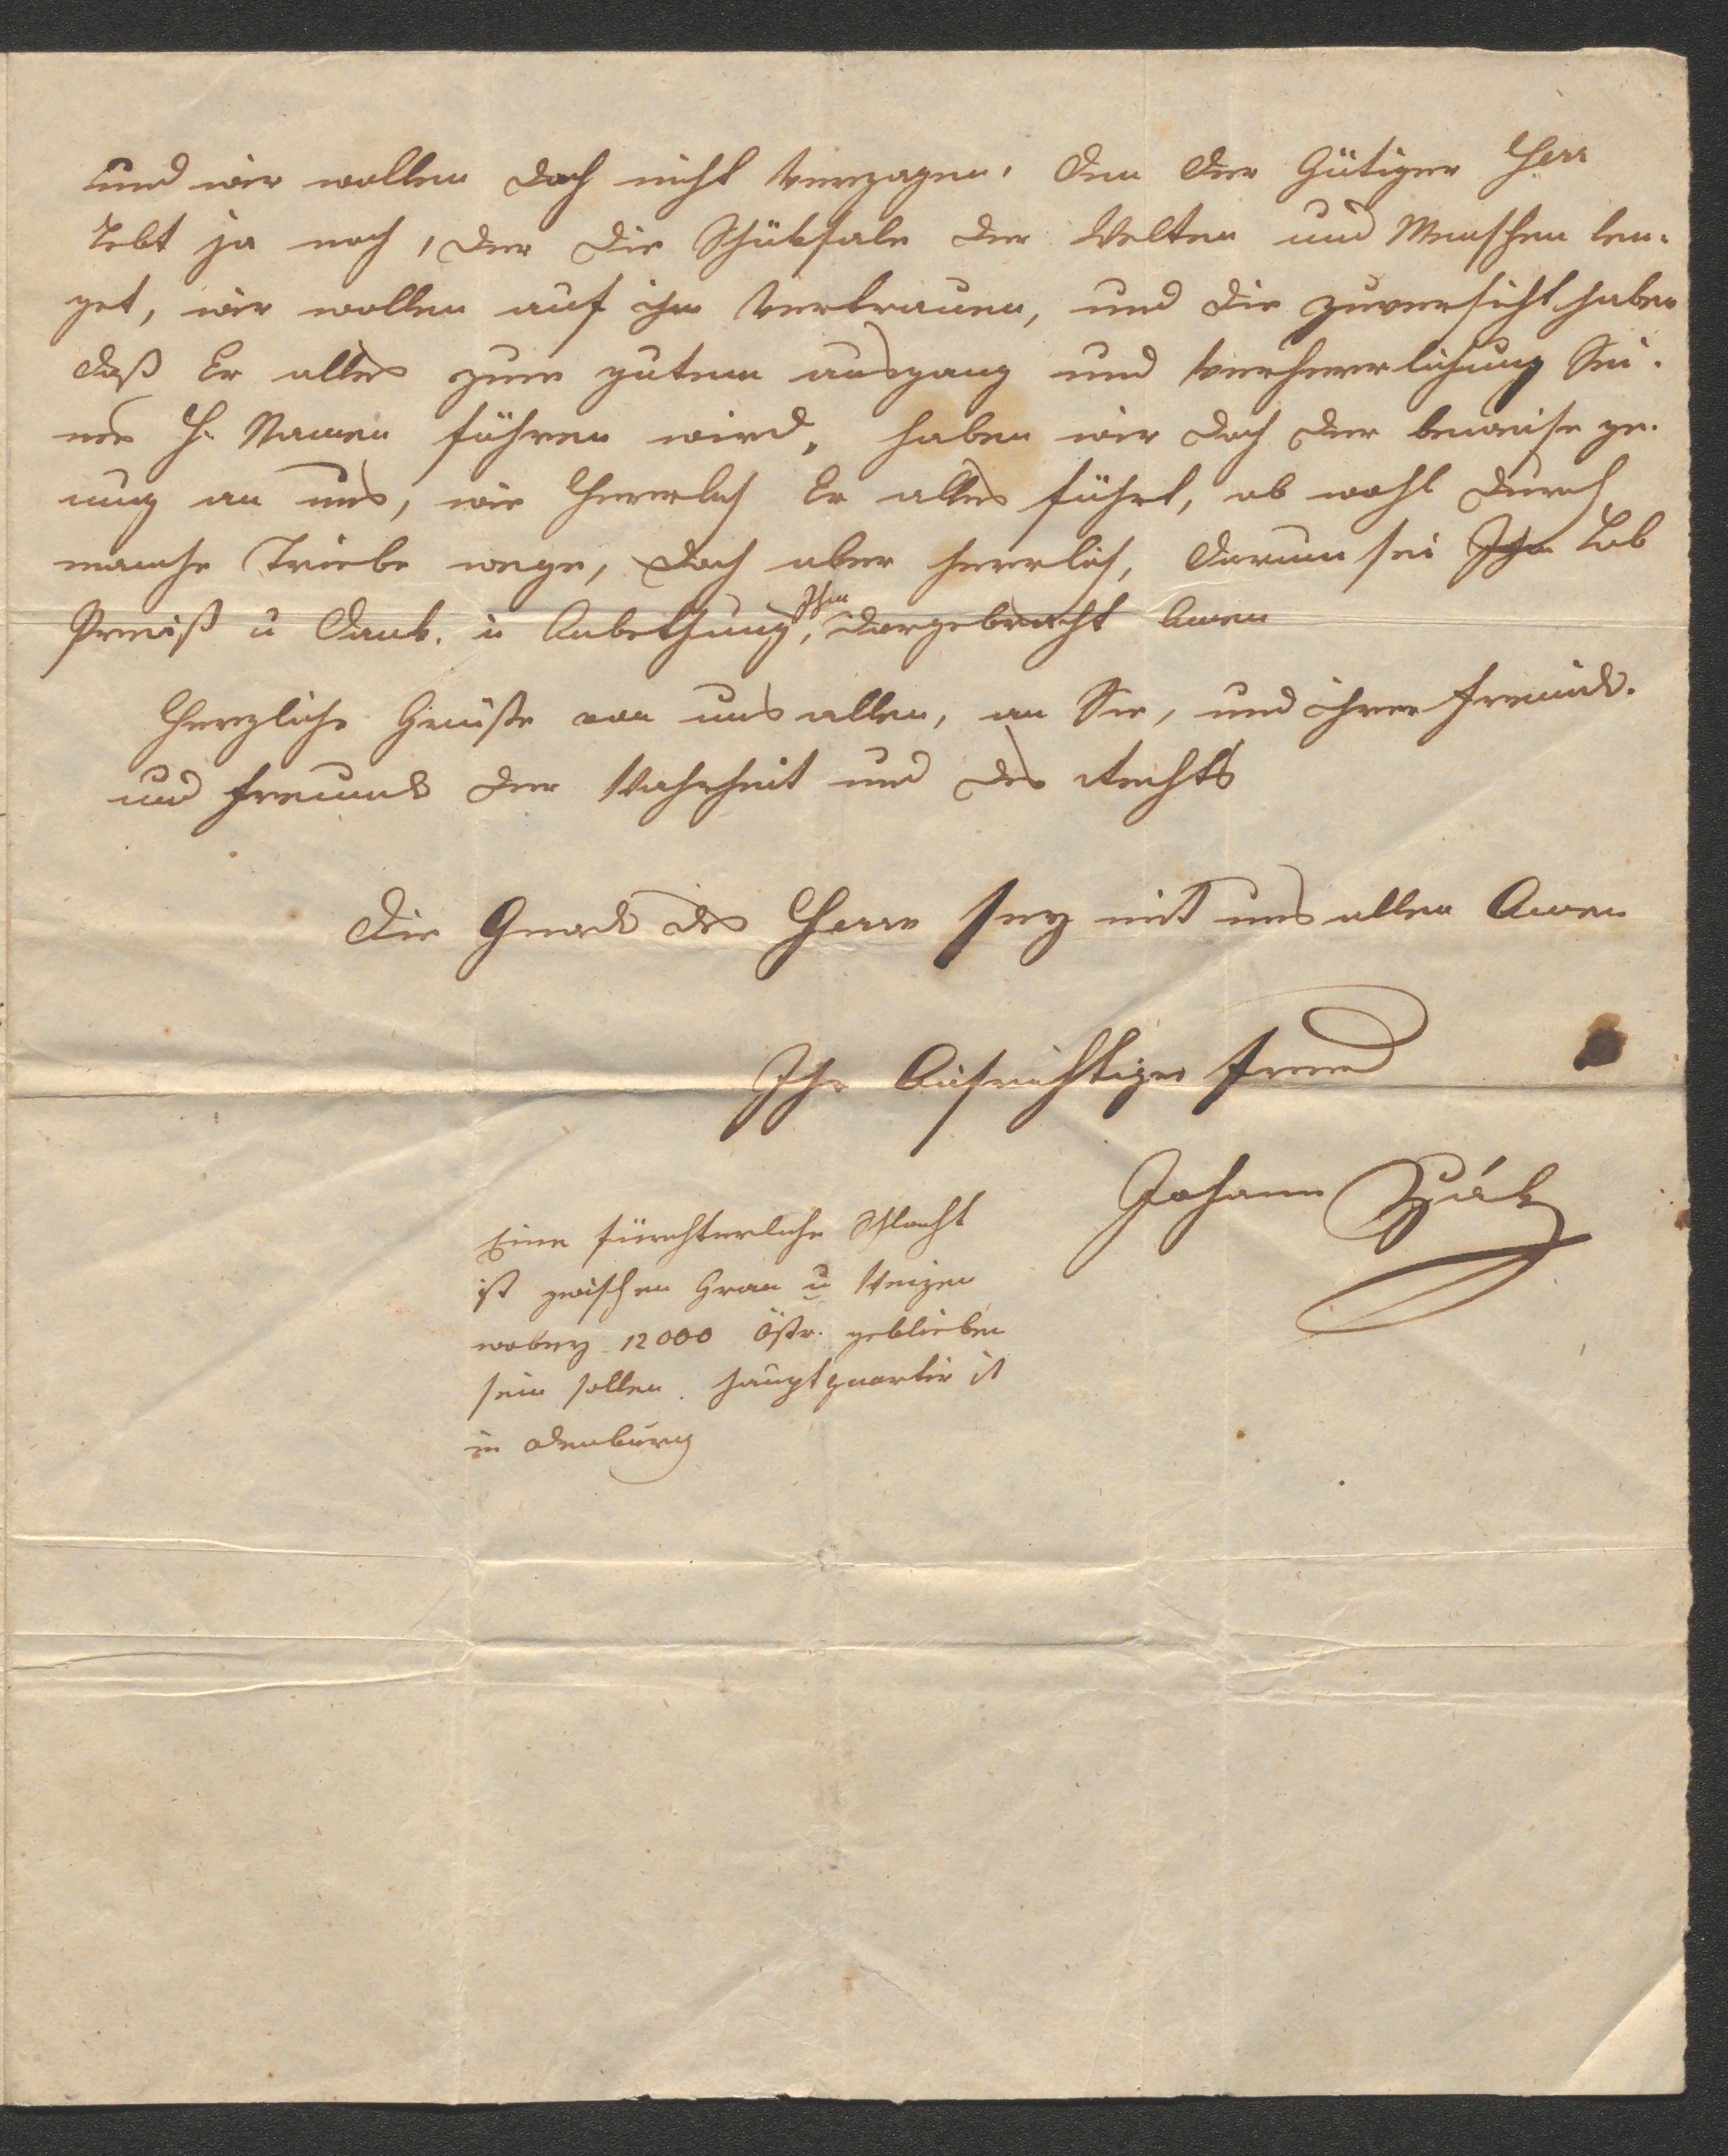 und wir wollen doch nicht verzagen, den der Gütiger Herr
Lebt ja noch, der die Schüksale der Welten und Menschen len-
get, wir wollen auf ihn vertrauen, und die zuversicht haben
daß Er alles zum gutem ausgang und verherrlichung Sei-
nes H. Namen führen wird, haben wir doch der beweise ge-
nug an uns, wie Herrlich Er alles führt, ob wohl durch
manche Triebe wege, doch aber herrlich, darum sei Ihm Lob
Preiß u Dank. u Anbethung, Ihm dargebracht Amen
Herzliche Grüße von uns allen, an Sie, und ihrer freunde.
und freunde der Wahrheit und des Rechts
Die Gnade des Herrn sey mit uns allen Amen
Ihr Aufrichtiger freund
Johann
Eine fürchterliche Schlacht
ist zwischen Gran u Weizen
wobey 12000 Östr. geblieben
sein sollen. Hauptquartir ist
in Odenburg